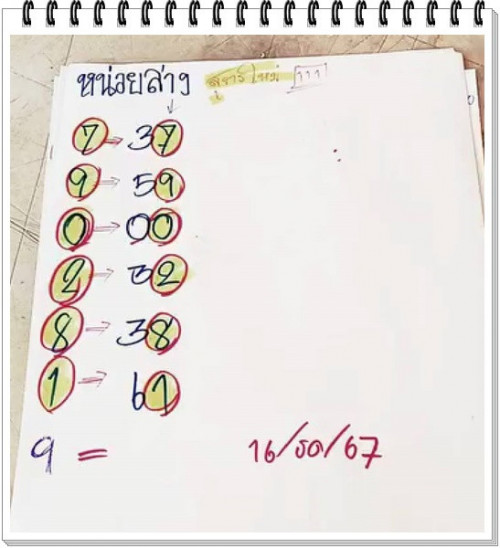 หน่วยล่าง
7 → 37
9 → 59
0 → 00
2 → 32
8 → 38
1 → 61
9 =
16/ธค/67